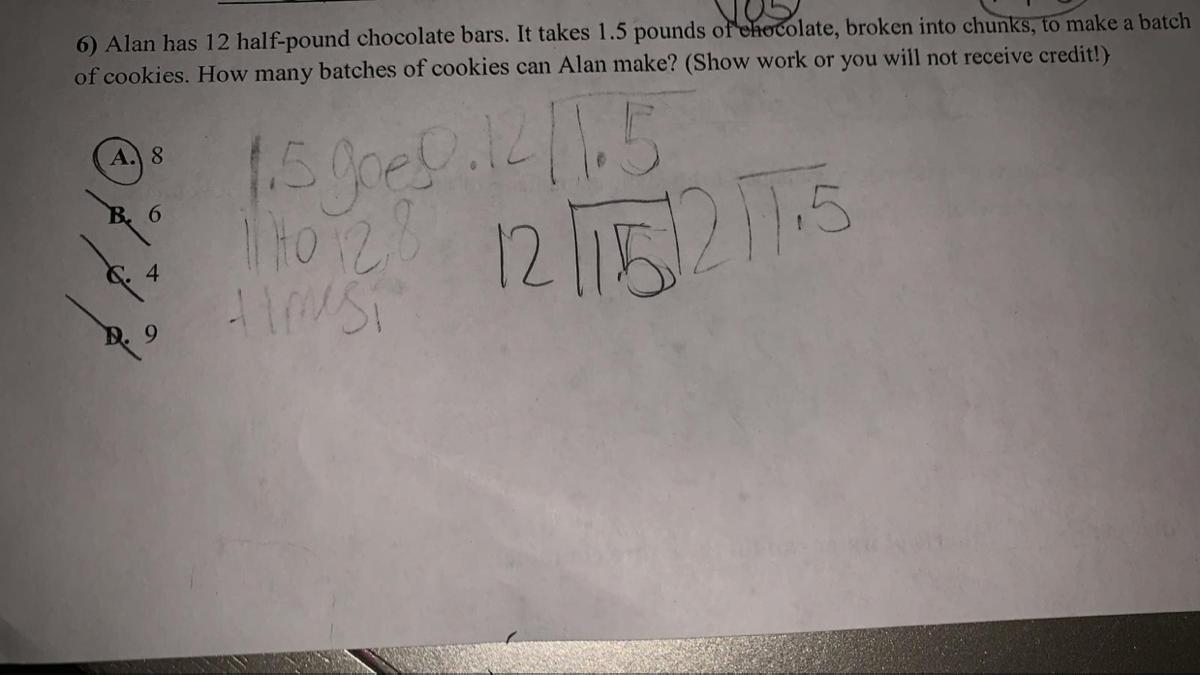 6) Alan has 12 half-pound chocolate bars. It takes 1.5 pounds of chocolate, broken into chunks, to make a batch
of cookies. How many batches of cookies can Alan make? (Show work or you will not receive credit!)
A. 8
B. 6
C. 4
D. 9
1.5 goes
into 12, 8
times
0.12 1.5
12 1.5
12 1.5